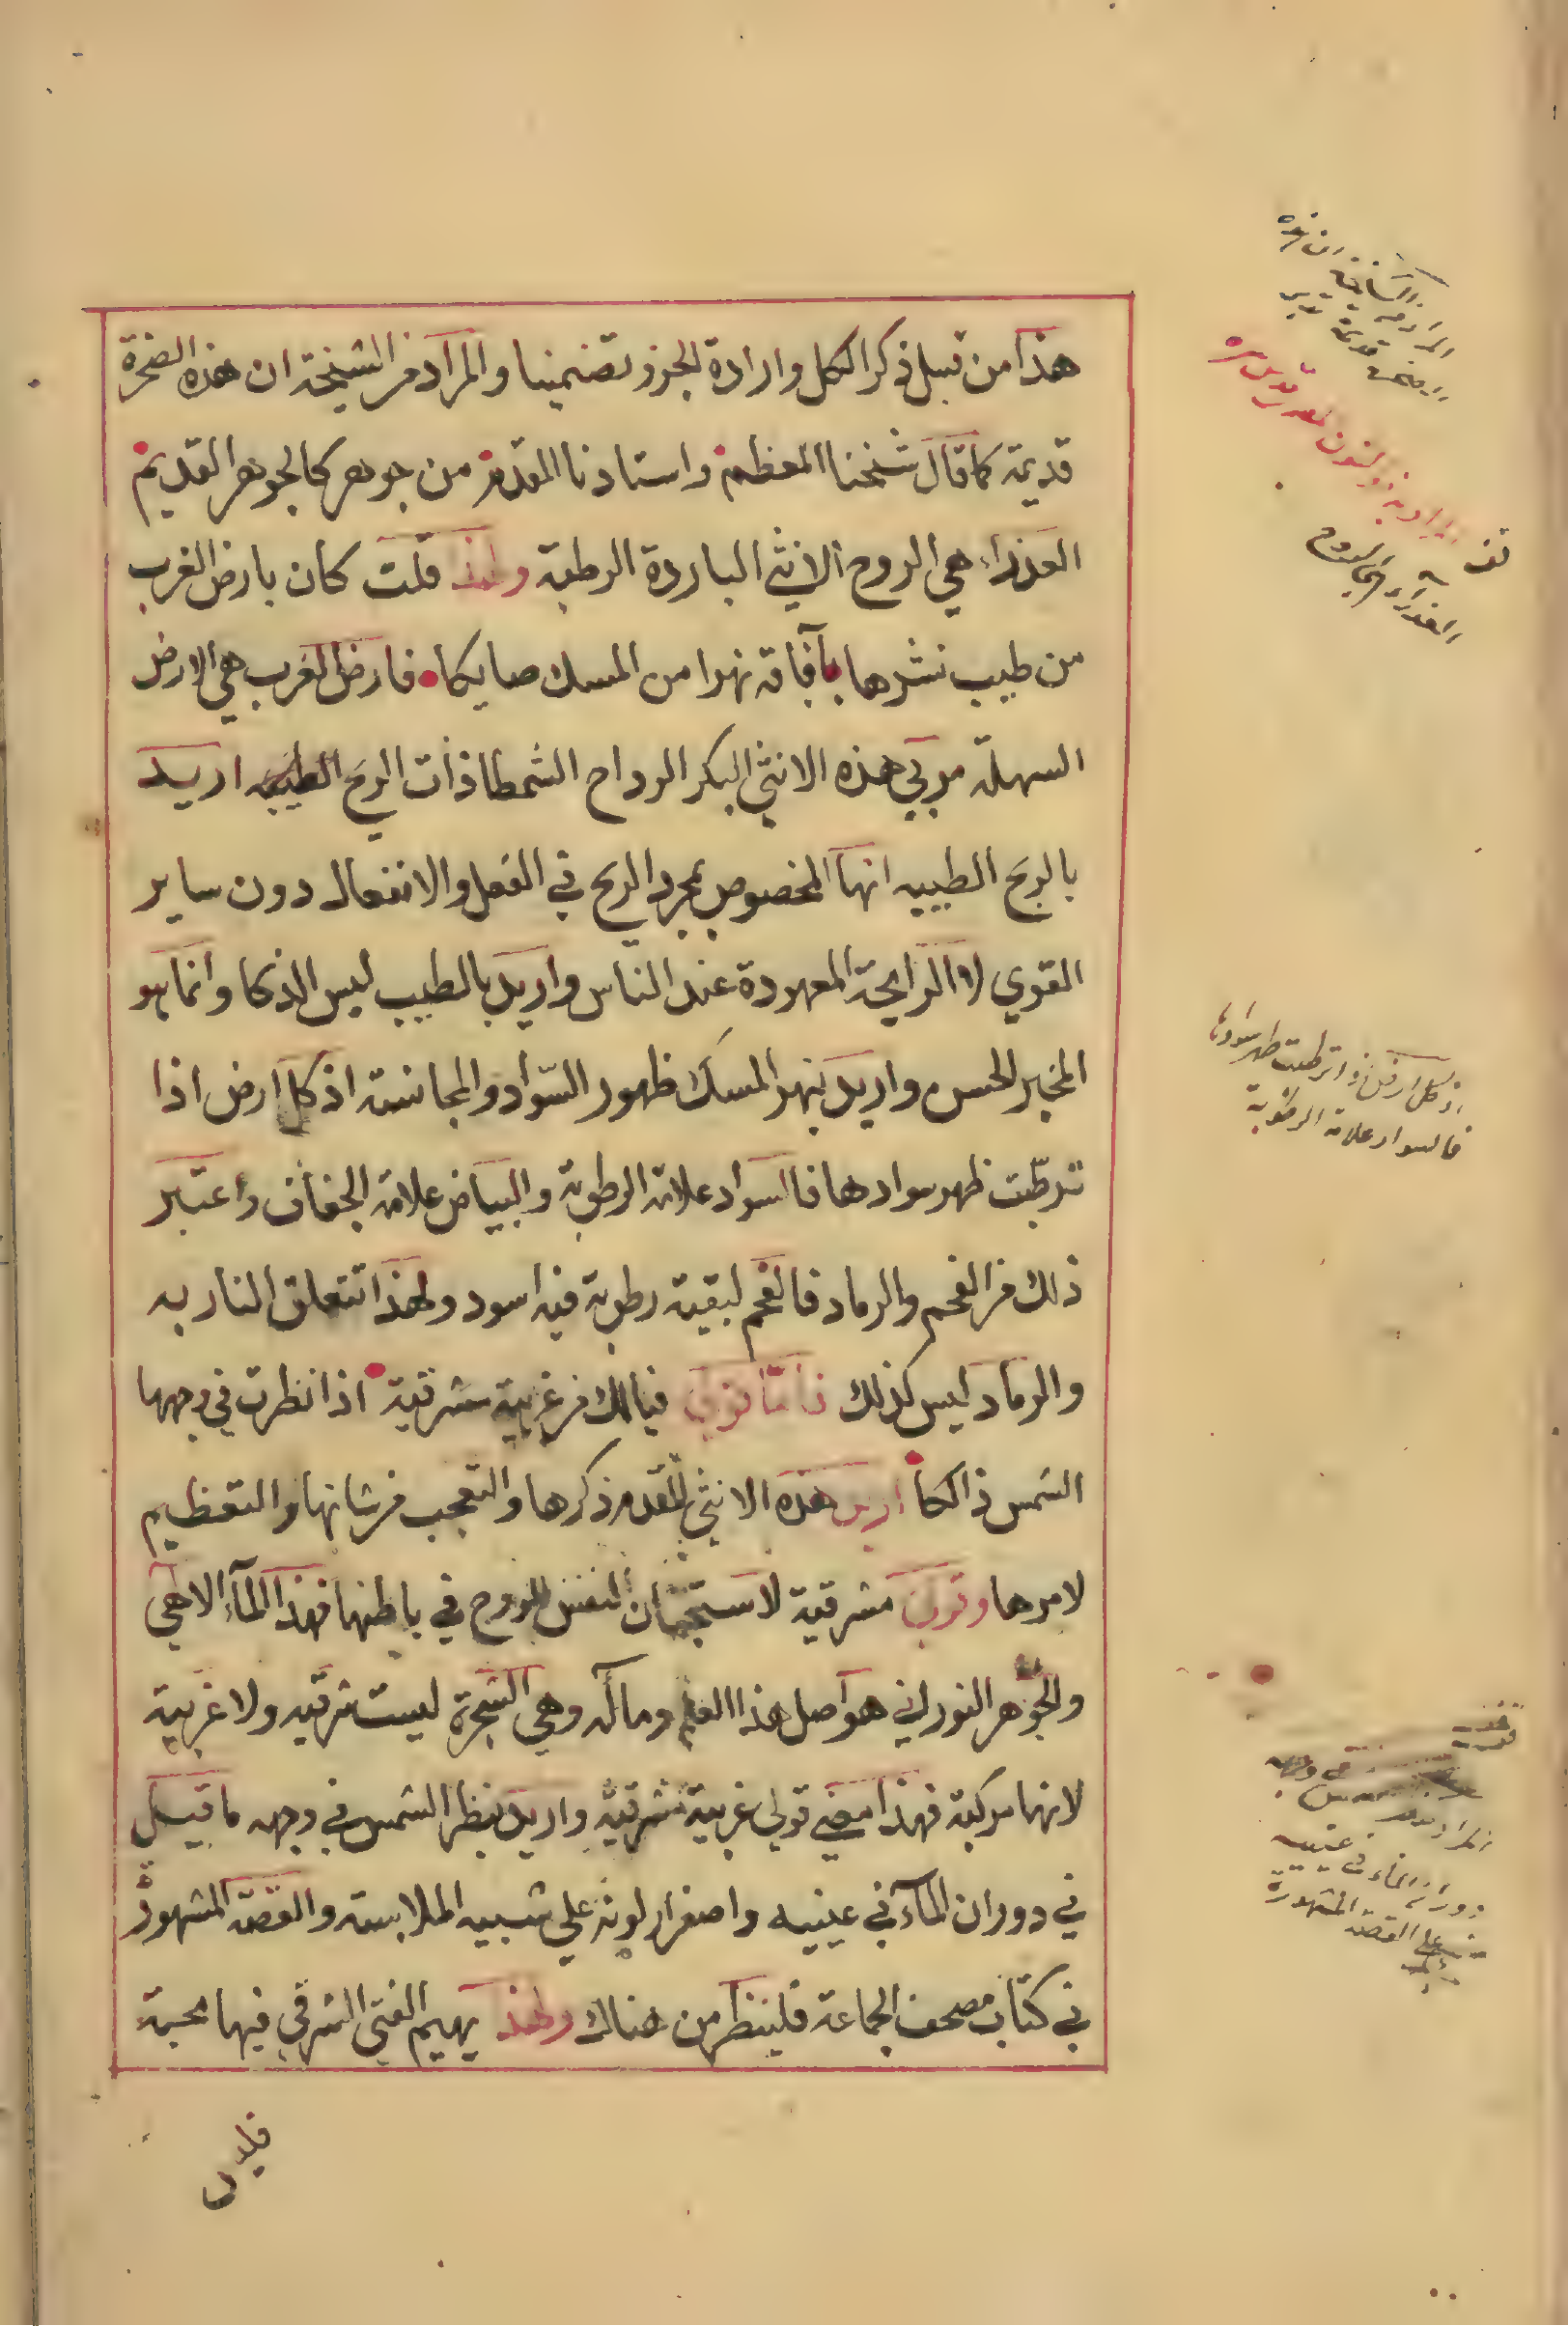 هذا من قبيل ذكر الكل وارادة الجزو تضمينا والمراد من الشيخة ان هذه الصخرة
قديمة كما قال شيخنا المعظم واستادنا المقدم من جوهر كالجوهر القديم
العذراء هي الروح الانثي الباردة الرطبة ولهذا قلت كان بارض الغرب
من طيب نشرها بآفاقه نهرا من المسك صايكا فارض الغرب هي الارض
السهلة مربي هذه الانثي البكر الرداح الشمطا ذات الريح الطيبه اريد
بالريح الطيبه انها المخصوص بمجرد الريح في الفعل والانفعال دون ساير
القوي لا الرايحة المعهودة عند الناس واريد بالطيب ليس الذكا وانما هو
المخبر الحسن واريد بنهر المسك ظهور السواد والمجانسة اذ كل ارض اذا
ترطبت ظهر سوادها فالسواد علامة الرطوبة والبياض علامة الجفاف واعتبر
ذلك من الفحم والرماد فالفحم لبقية رطوبة فيه اسود ولهذا تتعلق النار به
والرماد ليس كذلك فاما قولي فيالك من غربية مشرقية اذا نظرت في وجهها
الشمس ذالكا اريد هذه الانثي المقدم ذكرها والتعجب من شانها والتعظيم
لامرها وقولي مشرقية لاستجنان النفس الروح في باطنها فهذا الماء الالهي
والجوهر النوراني هو اصل هذا العلم ومآله وهي الشجرة ليست شرقيه ولا غربية
لانها مركبة فهذا معني قولي غربية مشرقية واريد بنظر الشمس في وجهه ما قيل
في دوران الماء في عينيه واصفرار لونه علي شبيه الملابسة والقصة المشهورة
في كتاب مصحف الجماعة فلينظر من هناك ولهذا يهيم الفتى الشرقي فيها محبة
المراد من الشيخة ان هذه
الصخرة قديمة
العذراء هي الروح
اذ كل ارض اذا ترطبت ظهر سوادها
فالسواد علامة الرطوبة
في وجهه
دوران الماء في عينيه
علي القصة المشهورة